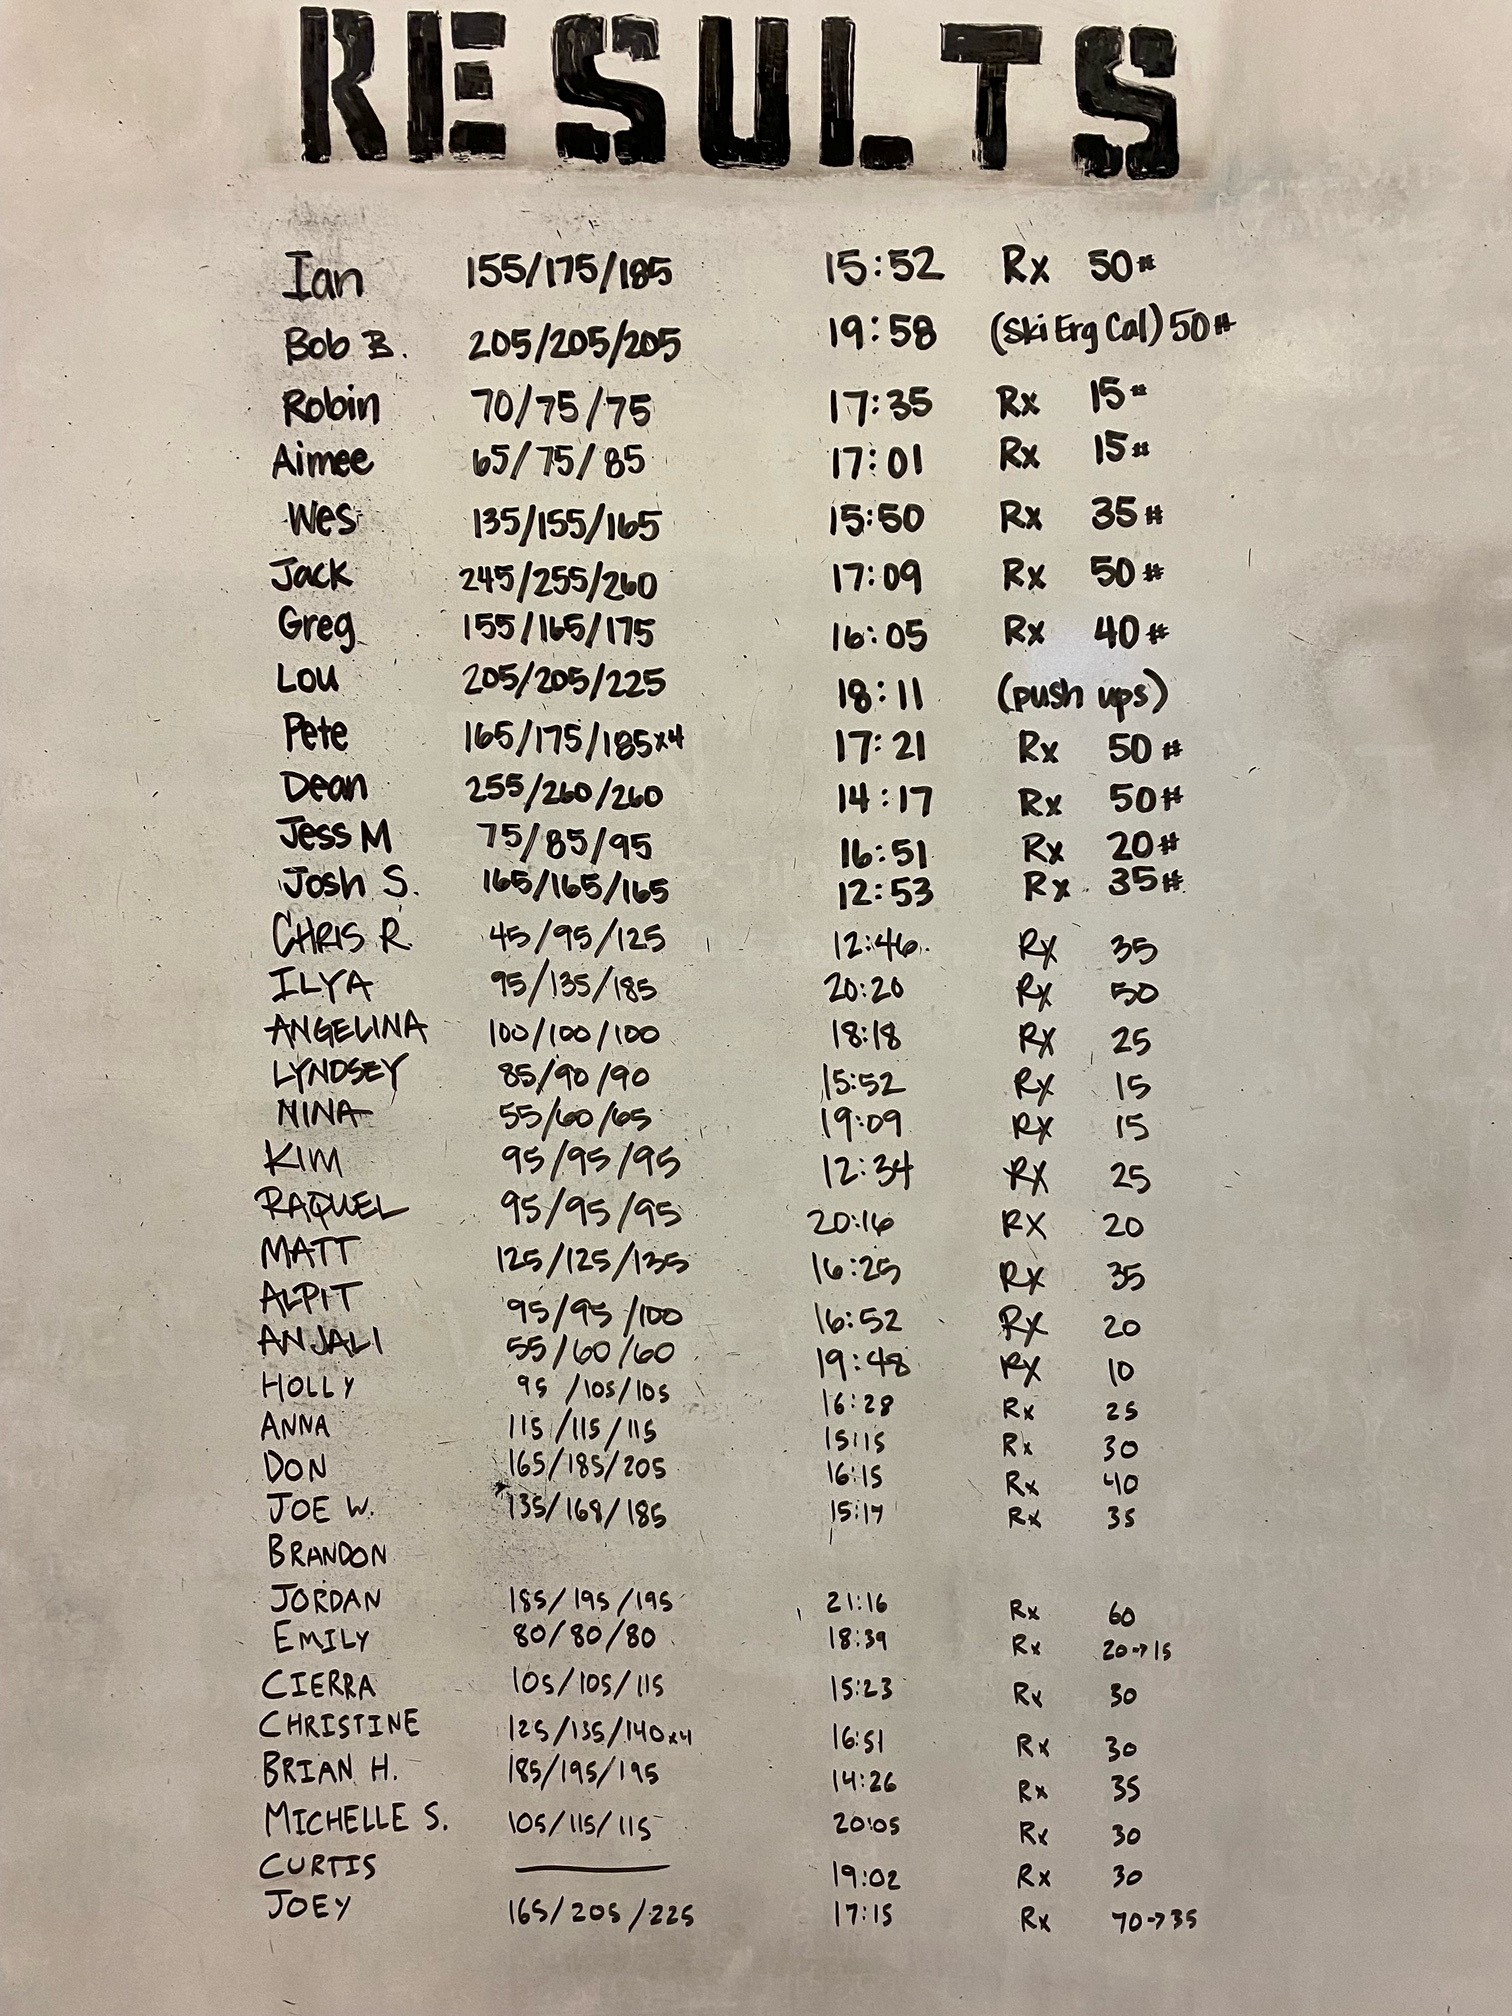 RESULTS
Ian 155/175/185 15:52 Rx 50#
Bob B. 205/205/205 19:58 (Ski Erg Cal) 50#
Robin 70/75/75 17:35 Rx 15#
Aimee 65/75/85 17:01 Rx 15#
Wes 135/155/165 15:50 Rx 35#
Jack 245/255/260 17:09 Rx 50#
Greg 155/165/175 16:05 Rx 40#
Lou 205/205/225 18:11 (push ups)
Pete 165/175/185x4 17:21 Rx 50#
Dean 255/260/260 14:17 Rx 50#
Jess M 75/85/95 16:51 Rx 20#
Josh S. 165/165/165 12:53 Rx 35#
CHRIS R. 45/95/125 12:46 Rx 35
ILYA 95/135/185 20:20 Rx 50
ANGELINA 100/100/100 18:18 RX 25
LYNDSEY 85/90/90 15:52 RX 15
NINA 55/60/65 19:09 RX 15
KIM 95/95/95 12:34 RX 25
RAQUEL 95/95/95 20:16 RX 20
MATT 125/125/135 16:25 RX 35
ALPIT 95/95/100 16:52 RX 20
ANJALI 55/60/60 19:48 RX 10
HOLLY 95/105/105 16:28 Rx 25
ANNA 115/115/115 15:15 Rx 30
DON 165/185/205 16:15 Rx 40
JOE W. 135/168/185 15:17 Rx 35
BRANDON
JORDAN 185/195/195 21:16 Rx 60
EMILY 80/80/80 18:39 Rx 20→15
CIERRA 105/105/115 15:23 Rx 30
CHRISTINE 125/135/140x4 16:51 Rx 30
BRIAN H. 185/195/195 14:26 Rx 35
MICHELLE S. 105/115/115 20:05 Rx 30
CURTIS — 19:02 Rx 30
JOEY 165/205/225 17:15 Rx 70→35